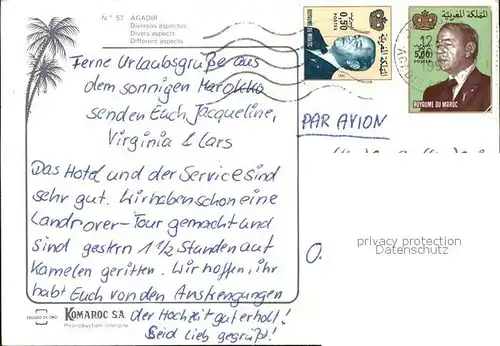 N° 57 AGADIR
Diversos aspectos
Divers aspects
Different aspects
Ferne Urlaubsgrüße aus
dem sonnigen Marokko
senden Euch Jacqueline,
Virginia & Lars
Das Hotel und der Service sind
sehr gut. Wir haben schon eine
Landrover-Tour gemacht und
sind gestern 1 1/2 Stunden auf
Kamelen geritten. Wir hoffen, ihr
habt Euch von den Anstrengungen
der Hochzeit gut erholt!
Seid lieb gegrüßt!
KOMAROC S.A.
Reproduction interdite
0,50
POSTES
المملكة المغربية
5,00
ROYAUME DU MAROC
12
PAR AVION
privacy protection
Datenschutz